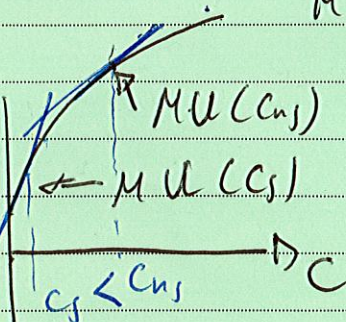 M
MU(Cns)
← MU(Cs)
C
Cs < Cns